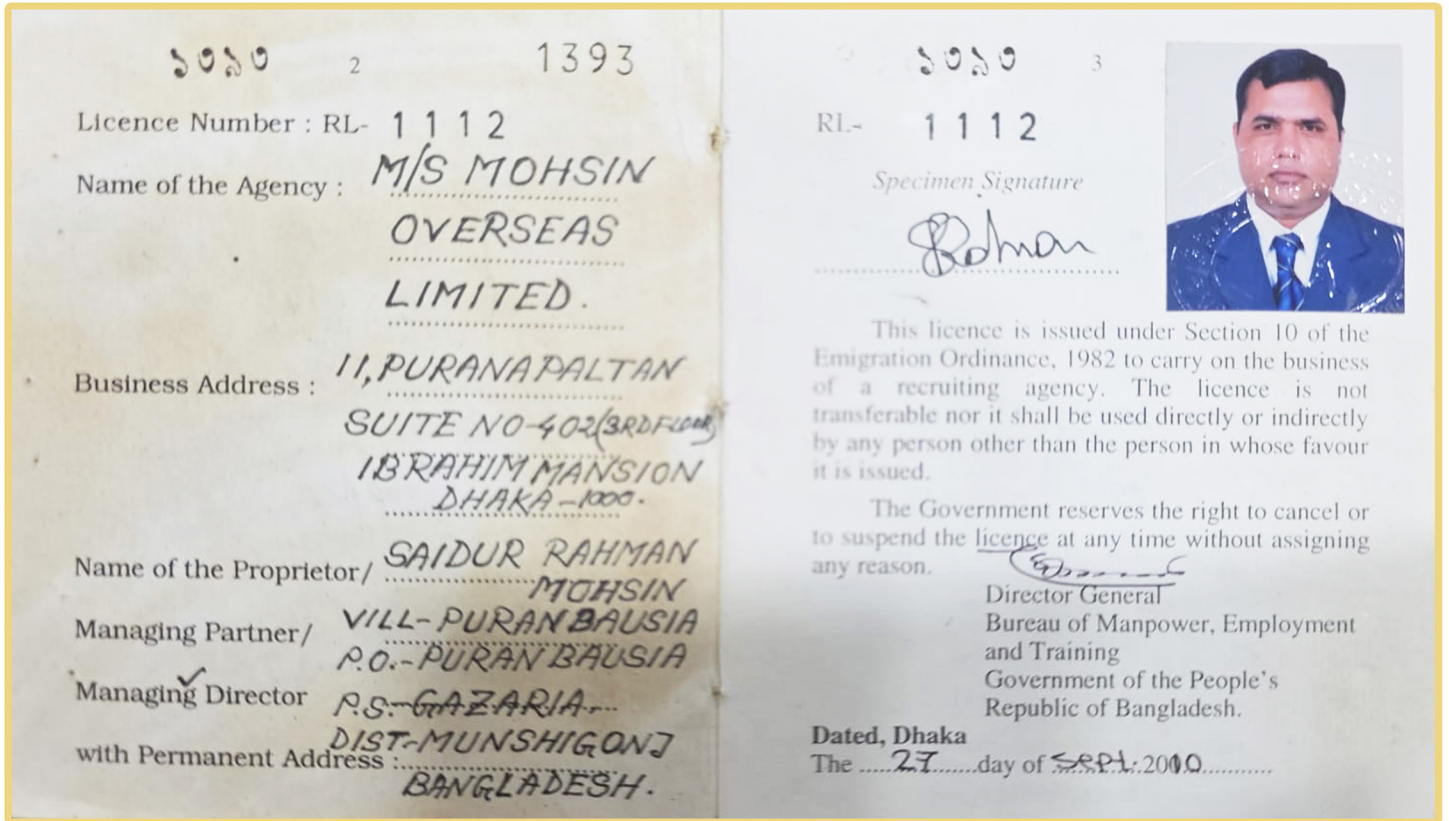 ১৩৯৩ 2 1393
Licence Number : RL- 1112
Name of the Agency : M/S MOHSIN
OVERSEAS
LIMITED.
Business Address : 11, PURANA PALTAN
SUITE NO-402(3RD FLOOR)
IBRAHIM MANSION
DHAKA-1000.
Name of the Proprietor/ SAIDUR RAHMAN
MOHSIN
Managing Partner/ VILL-PURAN BAUSIA
P.O.-PURAN BAUSIA
Managing Director P.S-GAZARIA
with Permanent Address : DIST-MUNSHIGONJ
BANGLADESH.
১৩৯৩ 3
RL- 1112
Specimen Signature
This licence is issued under Section 10 of the
Emigration Ordinance, 1982 to carry on the business
of a recruiting agency. The licence is not
transferable nor it shall be used directly or indirectly
by any person other than the person in whose favour
it is issued.
The Government reserves the right to cancel or
to suspend the licence at any time without assigning
any reason.
Director General
Bureau of Manpower, Employment
and Training
Government of the People's
Republic of Bangladesh.
Dated, Dhaka
The 27 day of Sept. 2010